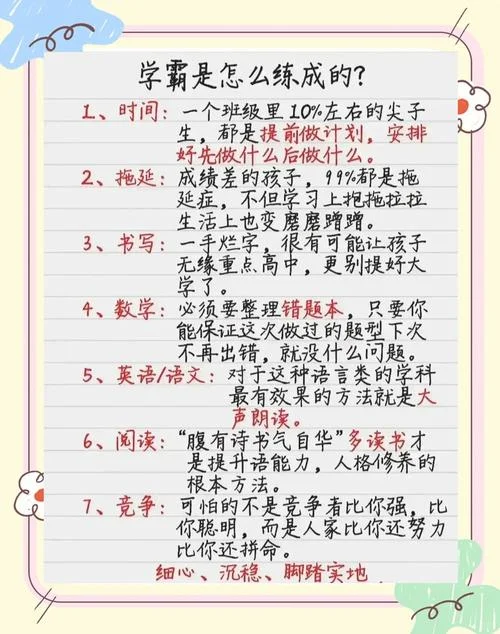 学霸是怎么练成的?
1、时间：一个班级里10%左右的尖子
生，都是提前做计划，安排
好先做什么后做什么。
2、拖延：成绩差的孩子，99%都是拖
延症，不但学习上抱拖拉拉
生活上也变磨磨蹭蹭。
3、书写：一手烂字，很有可能让孩子
无缘重点高中，更别提好大
学了。
4、数学：必须要整理错题本，只要你
能保证这次做过的题型下次
不再出错，就没什么问题。
5、英语/语文：对于这种语言类的学科
最有效果的方法就是大
声朗读。
6、阅读：“腹有诗书气自华”多读书才
是提升语能力，人格修养的
根本方法。
7、竞争：可怕的不是竞争者比你强，比
你聪明，而是人家比你还努力
比你还拼命。
细心、沉稳、脚踏实地